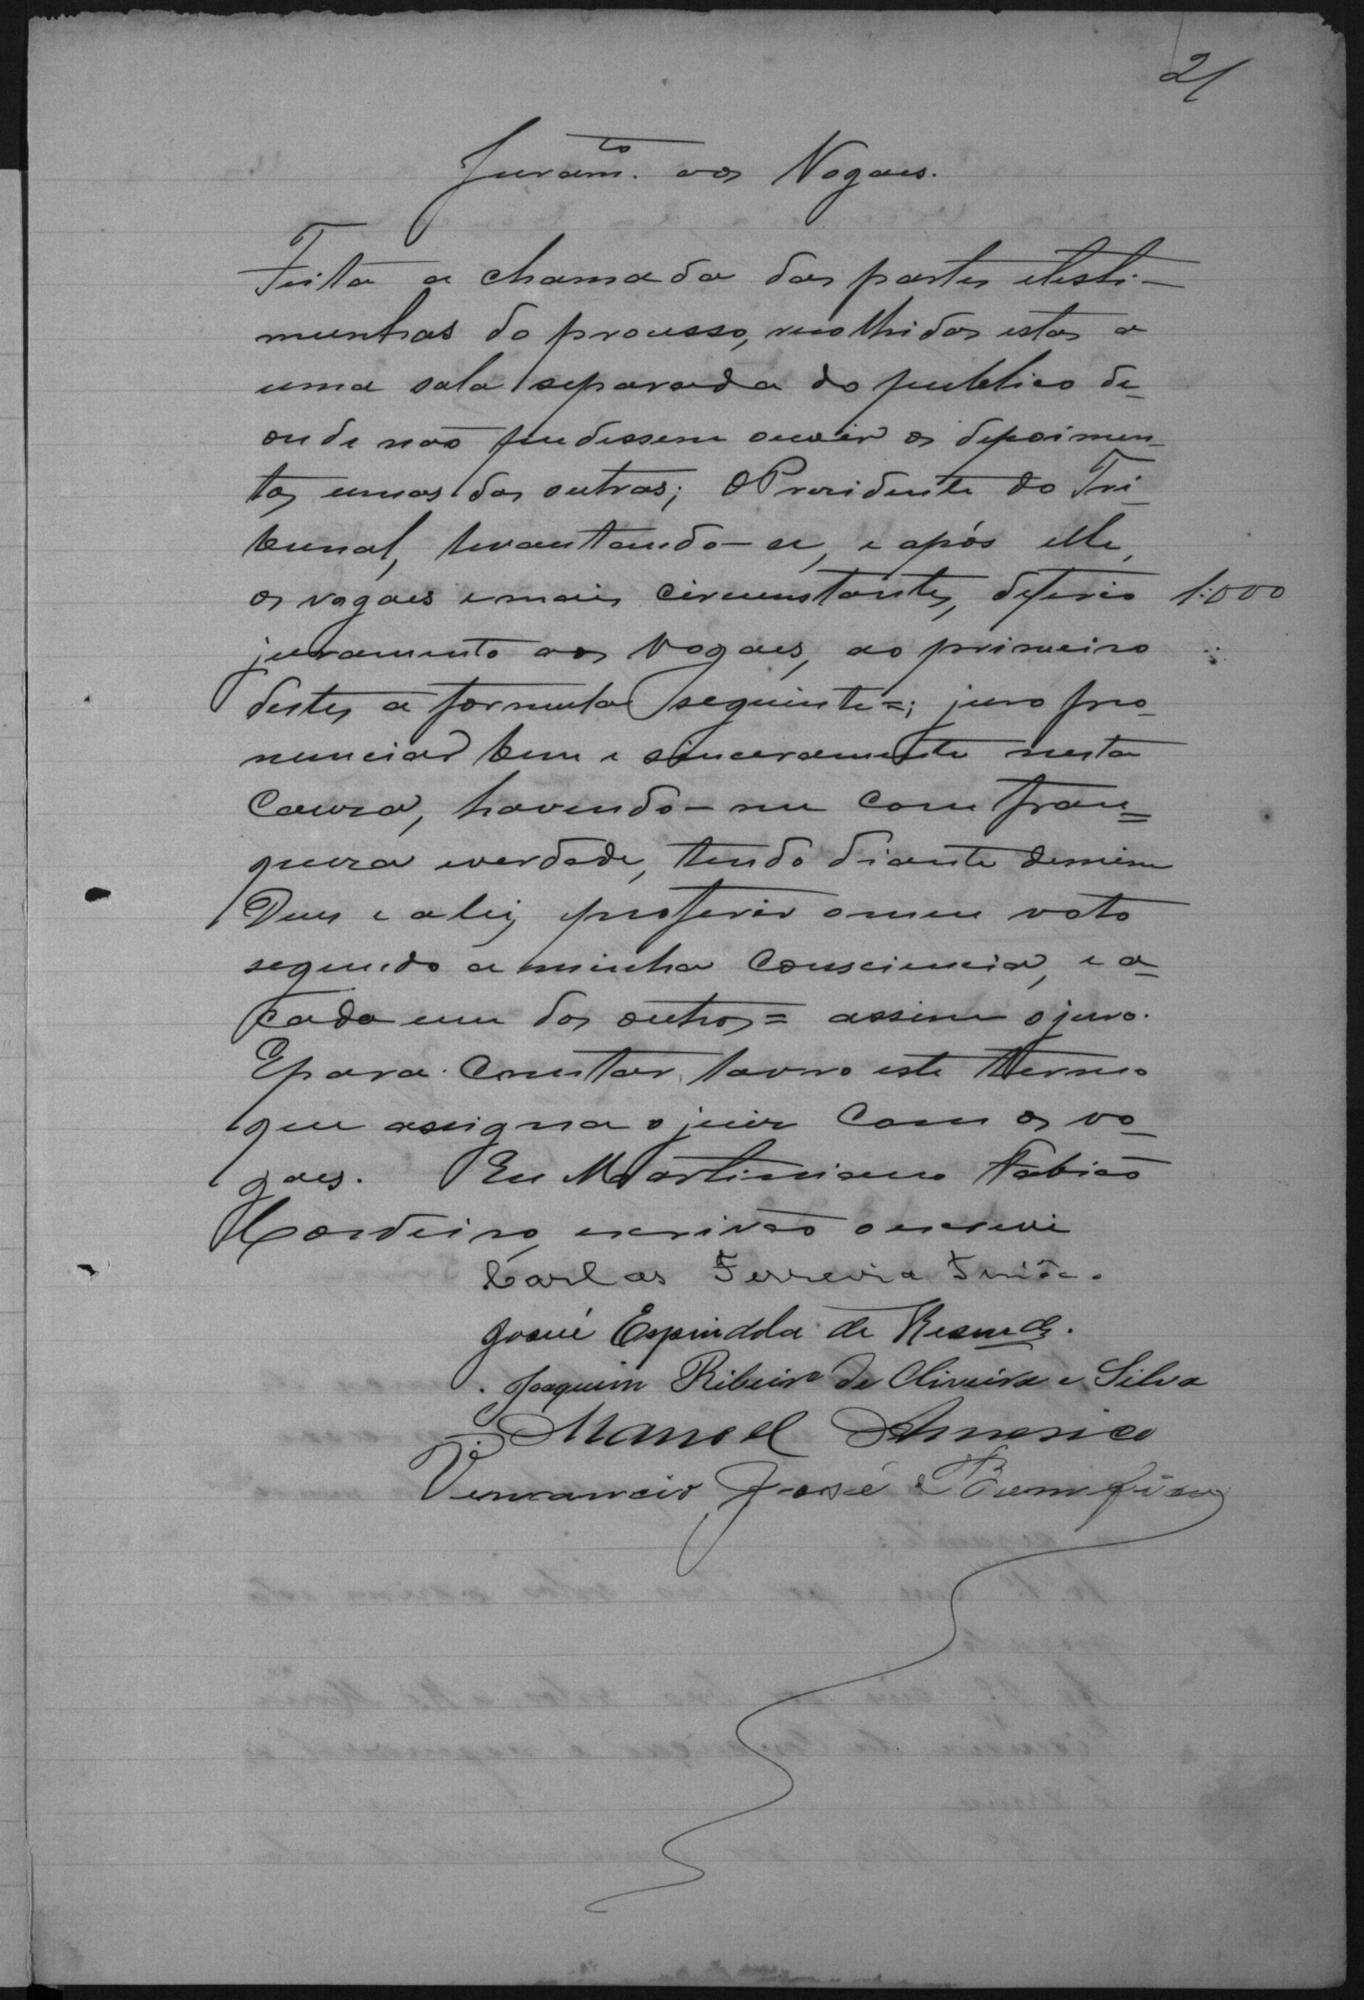 21
Juram.to aos Vogaes.
Feita a chamada das partes e testi-
munhas do processo, recolhidas estas a
uma sala separada do publico de
onde não pudessem ouvir os depoimen-
tos umas das outras; O Presidente do Tri-
bunal, levantando-se, e após elle,
os vogaes e mais circumstantes, deferio 1:000
juramento aos Vogaes, ao primeiro
destes a formula seguinte =; juro pro-
nunciar bem e sinceramente nesta
Causa, havendo-me com fran=
queza e verdade, tendo diante de mim
Deus e a lei, e proferir o meu voto
segundo a minha Consciencia, e a=
cada um dos outros = assim o juro.
E para Constar, lavro este termo
que assigna o juiz Com os vo-
gaes. Eu Martiniano Fabião
Cordeiro, escrivão o escrevi
Carlos Ferreira
Josué Espindola de Resende.
Joaquim Ribeiro de Oliveira e Silva
Manoel Americo
Venancio José Bomfim